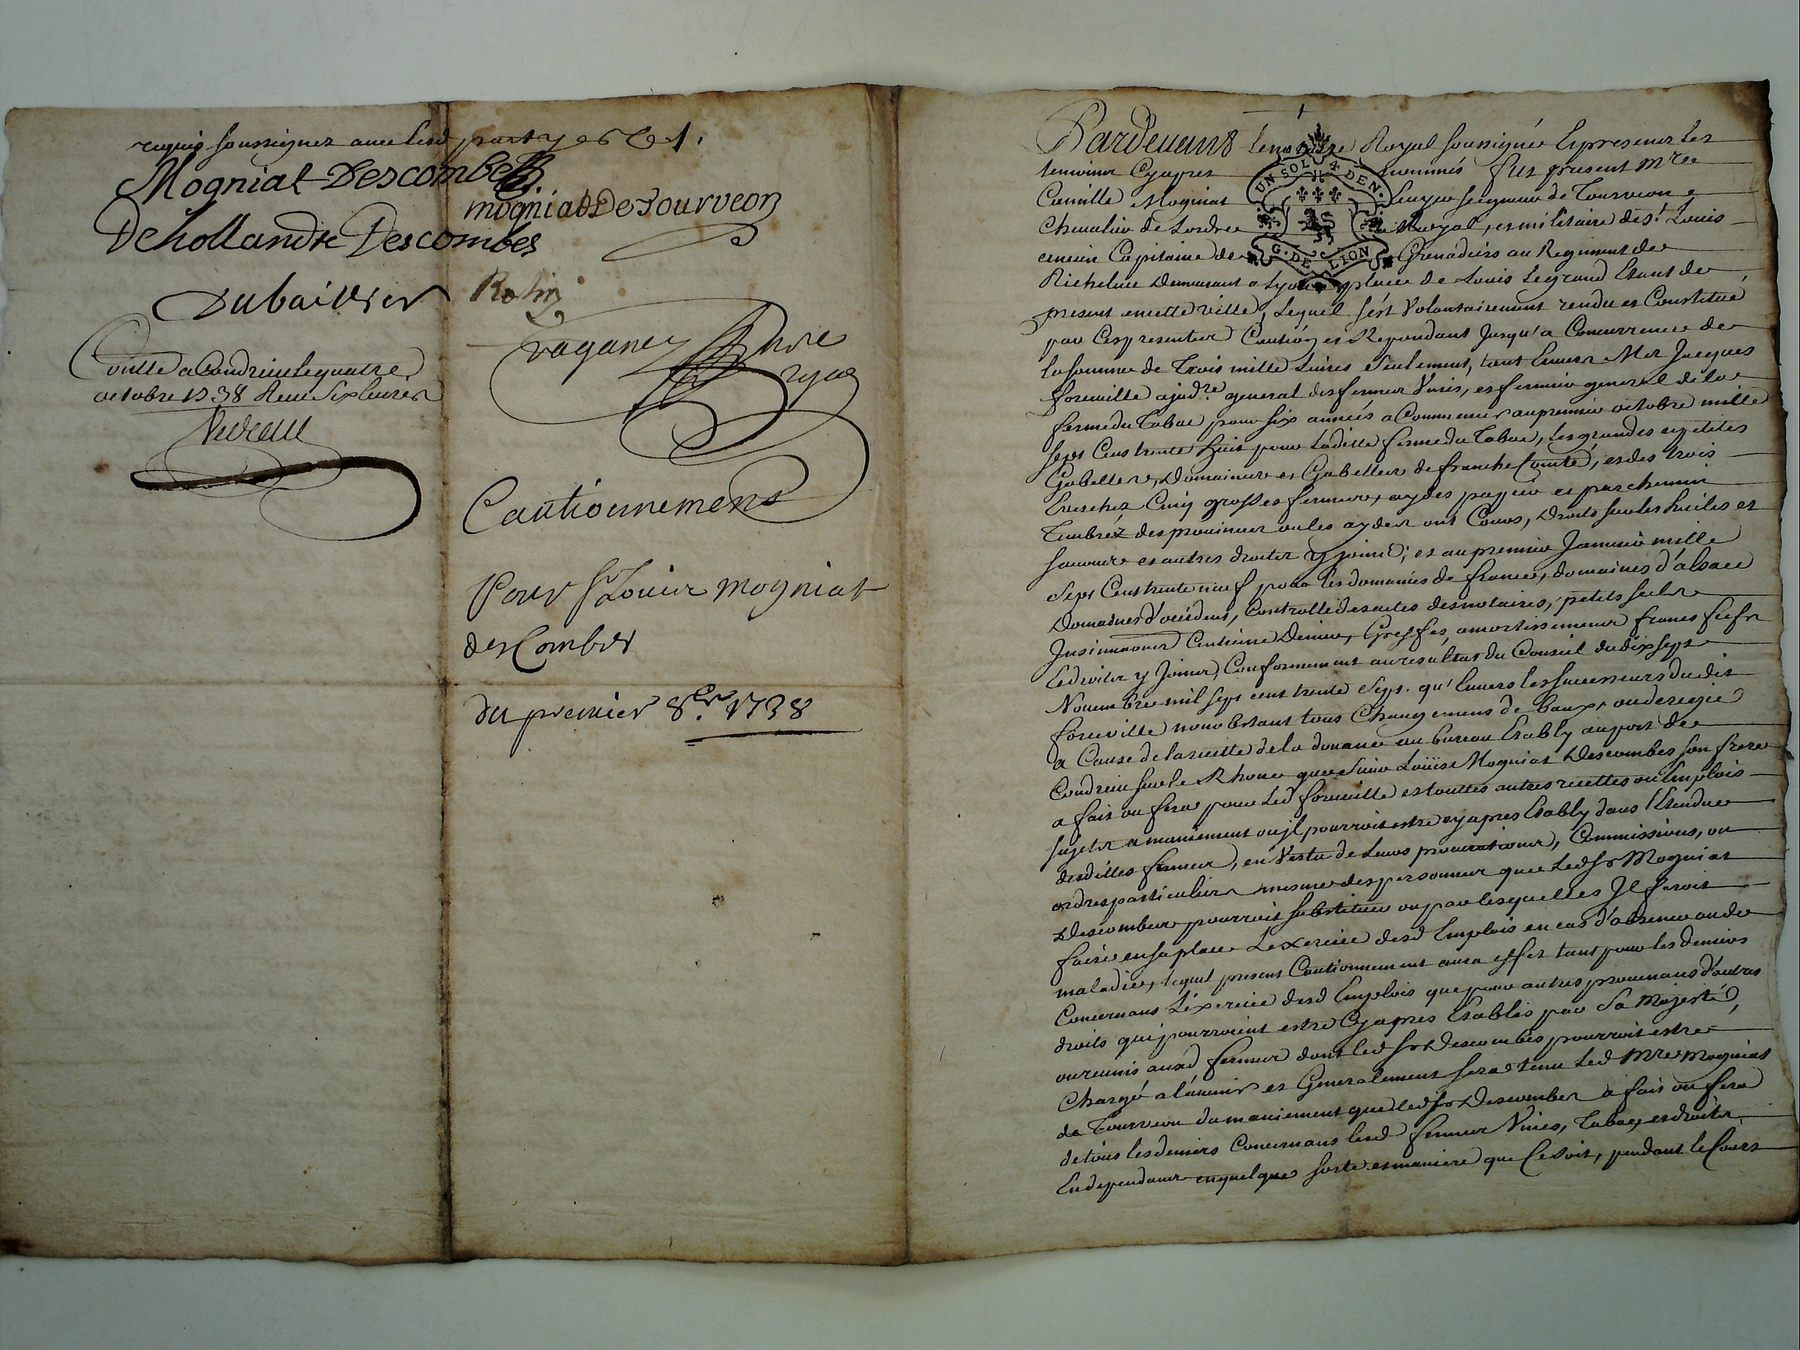 requis soussignez avec lesd partyes
Mogniat Descombes.
mogniat De Tourveon
De hollandre Descombes
Dubaillier
Robin
Conllé a Condrieu le quatre
octobre 1738 Reçu Six livres
Cautionnement
Pour Sr Louis mogniat
des Combes
du premier 8bre 1738
Pardevant le notaire Royal soussigné Et presens les
temoins Cyapres nommés fut present Mre
Camille Mogniat Ecuyer seigneur de Tourveon
Chevalier de Lordre Royal, et militaire de st Louis
ancien Capitaine de Grenadiers au Regiment de
Richelieu Demeurant a Lyon place de Louis Legrand Etant de
present en cette ville, Lequel s'est Volontairement rendu et Constitué
par Cespresentes Caution et Repondant Jusqu'a Concurrence de
la somme de Trois mille Livres seulement, tant Envers Me Jacques
forceville ajudre general des fermes Unies, et fermier general de la
ferme du Tabac pour six années a Commencer au premier octobre mille
sept Cens trente huit pour Laditte ferme du Tabac, les grandes et petites
Gabelles, Domaines et Gabelles de franche Comté, et des trois
Eveschez Cinq grosses fermes, aydes papier et parchemin
Timbréz des provinces ou les aydes ont Cours, Droits sur les huiles et
savons et autres droits y joints; et au premier Janvier mille
Sept Cens trente neuf pour les domaines de france, domaines d'alsace
Domaines d'occident, Controlle des actes des notaires, petits scels
Insinuations Centieme Denier, Greffes, amortissemens francs fiefs
Et droits y Joints, Conformement au resultat du Conseil du dix sept
Novembre mil sept cent trente sept. qu'Envers les successeurs dudit
forceville nonobstant tous Changemens de baux, ou de regie
a Cause de la recette de la douane au bureau Etably au port de
Condrieu sur le Rhone que Sieur Loüis Mogniat Descombes son frere
a fait ou fera pour Led forceville et touttes autres recettes ou Emplois
sujets a maniement ou jl pourroit estre cyapres Etably dans l'Etendue
desdittes fermes, en Vertu de Leurs procurations, Commissions, ou
ordres particuliers mesme des personnes que Led sr Mogniat
Descombes pourroit substituer ou par lesquelles Jl feroit
faire en sa place L'exercice desd Emplois en cas d'absence ou de
maladie, lequel present Cautionnement aura effet tant pour les deniers
Concernans L'exercice desd Emplois que pour autres provenans d'autres
droits qui pourroient estre Cyapres Etablis par Sa Majesté,
ou reunis ausd fermes dont led sr Descombes pourroit estre
Chargé a l'avenir et Generalement sera tenu Led Mre Mogniat
de Tourveon du maniement que led sr Descombes a fait ou fera
de tous les deniers Concernans lesd fermes Unies, Tabac, et droits
En dependans en quelque sorte et maniere que Ce soit, pendant le Cours
UN SOL 4 DEN.
G. DE LION